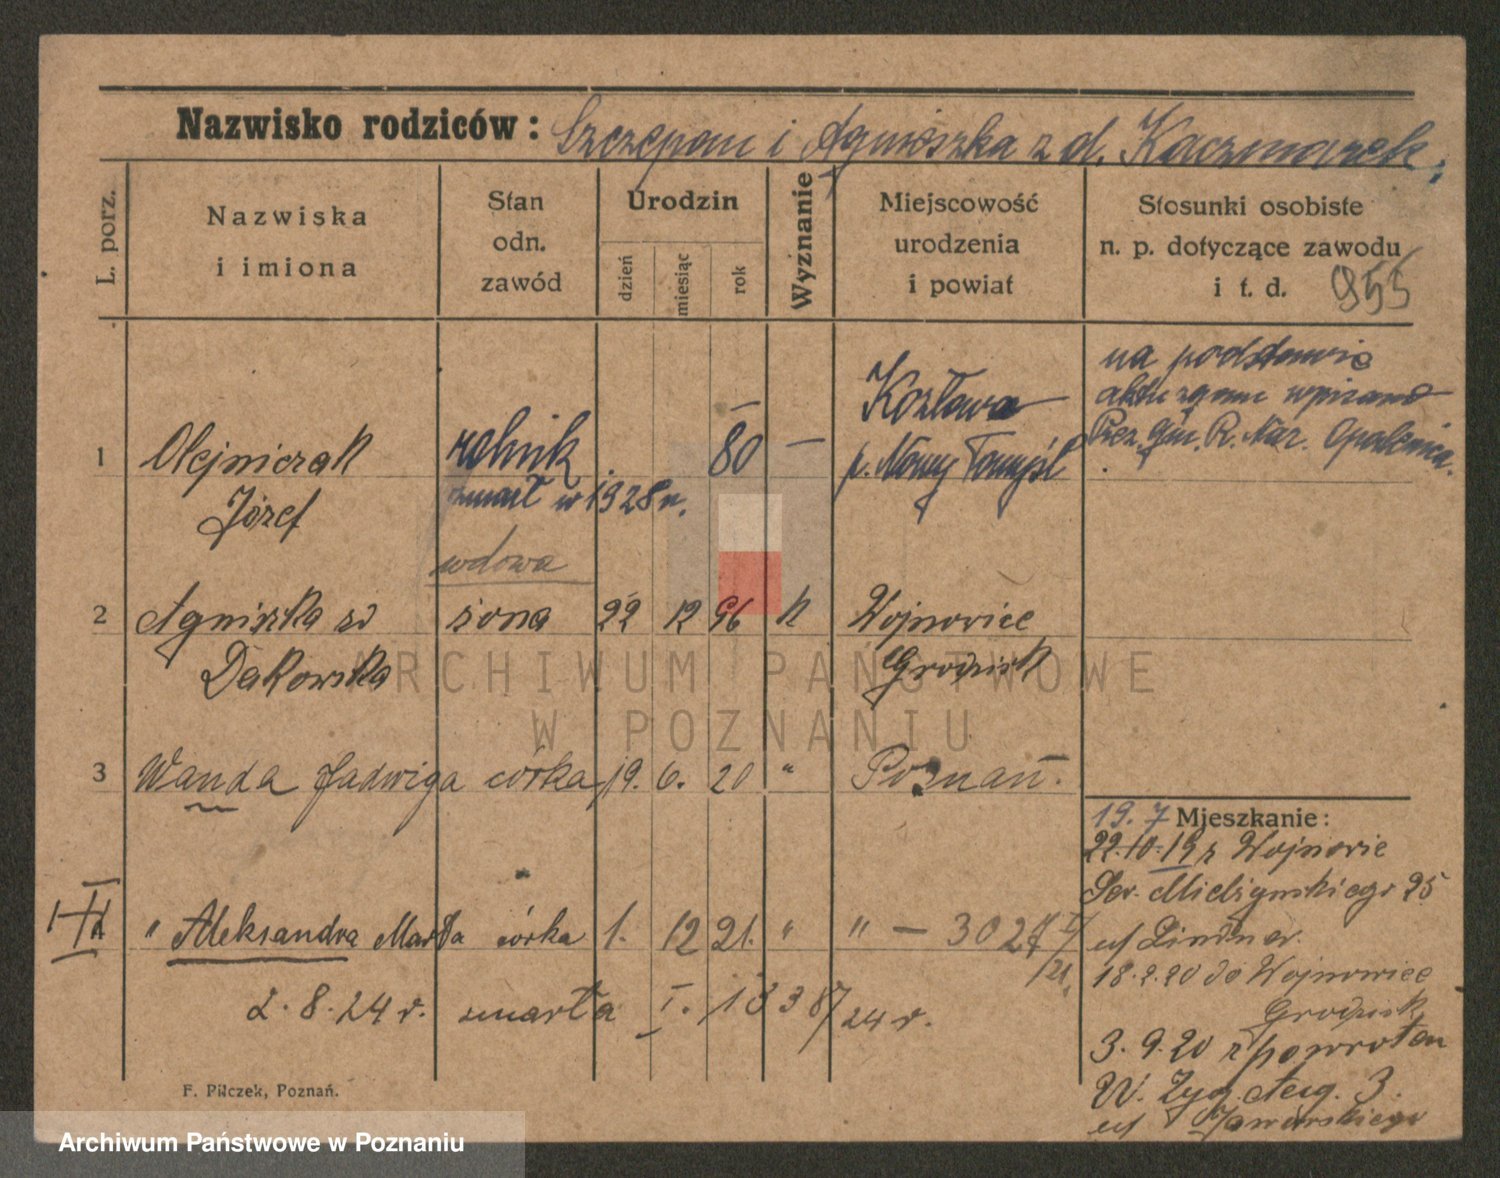 Nazwisko rodziców: Szczepan i Agnieszka z d. Kaczmarek,
L. porz.
Nazwiska
i imiona
Stan
odn.
zawód
Urodzin
dzień
miesiąc
rok
Wyznanie
Miejscowość
urodzenia
i powiat
Stosunki osobiste
n. p. dotyczące zawodu
i t. d. 955
na podstawie
aktu zgonu wpisano
Gm. R. Opalenica.
1 Olejniczak rolnik 80 — Kozłowo
Józef zmarł w 1928 r. p. Nowy Tomyśl
wdowa
2 Agniszka żona 22 12 96 k Wojnovice
Dakowska Grodzisk
3 Wanda Jadwiga córka 19. 6. 20 " Poznań.
" Aleksandra Marta córka 1. 12 21. " " — 3027
2. 8. 24 r. zmarła I. 1387/24 r.
19. 7 Mieszkanie:
22.10.19 z Wojnovic
Sew. Mielżyńskiego 25
u/ Lindner.
18.2.20 do Wojnowice
Grodzisk
3. 9. 20 z powrotem
W. Zyg. Aug. 3.
u/ Jaworskiego
F. Pilczek, Poznań.
ARCHIWUM PAŃSTWOWE
W POZNANIU
Archiwum Państwowe w Poznaniu